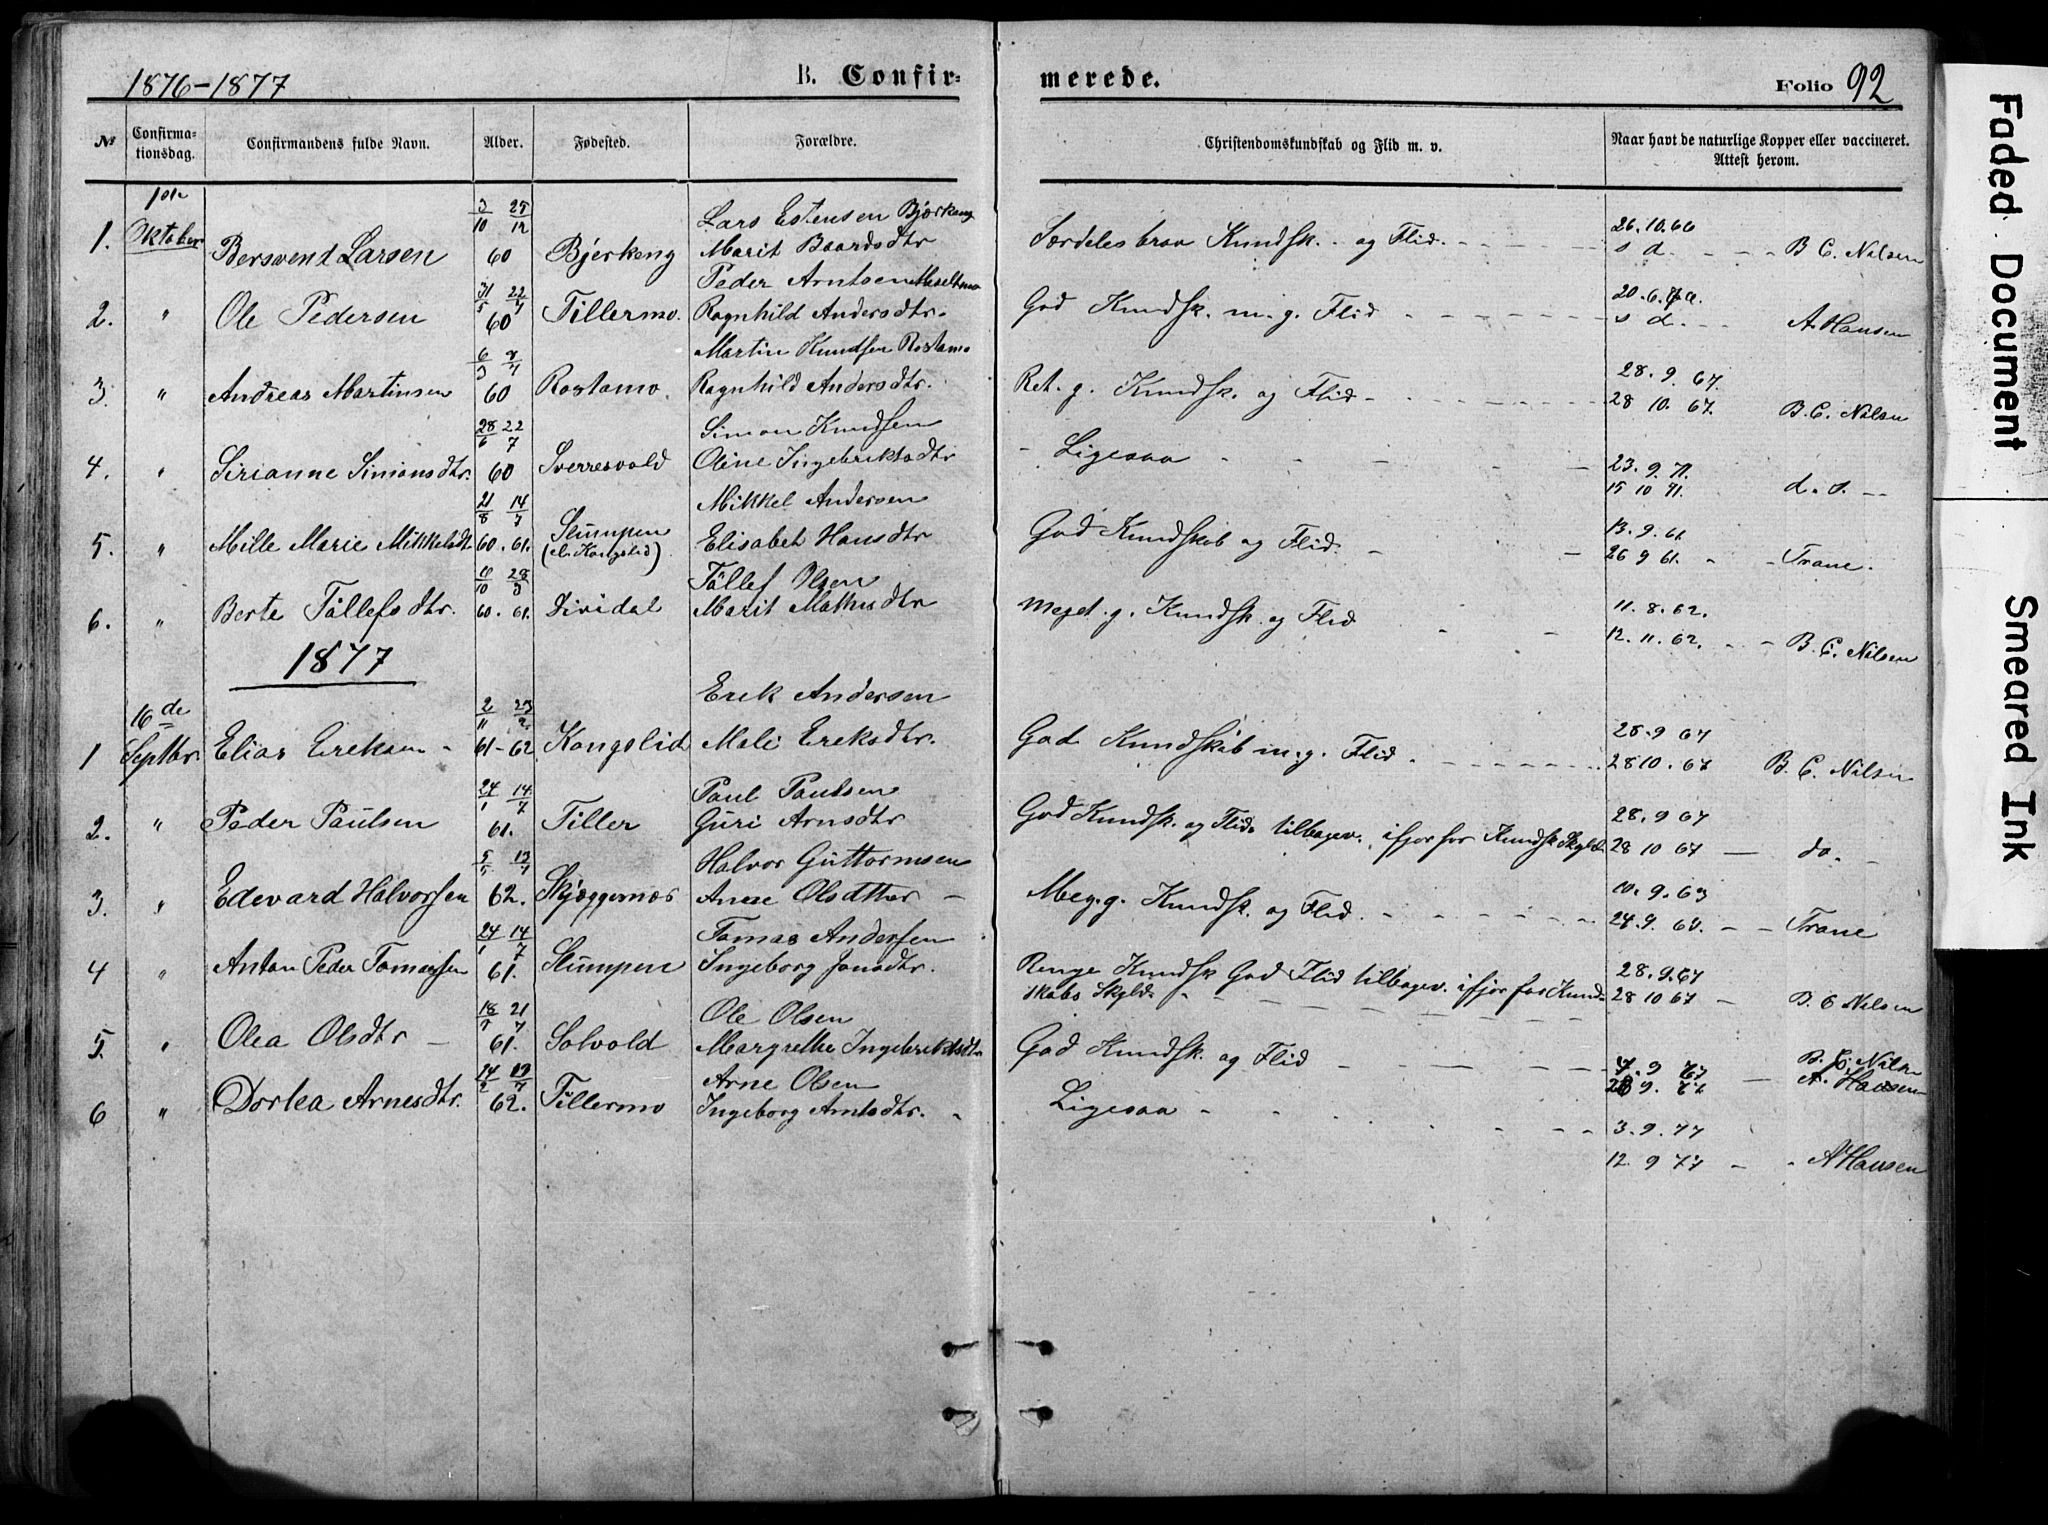 1876-1877
B. Confir-
merede.
Folio 92
Nº
Confirma-
tionsdag.
Confirmandens fulde Navn.
Alder.
Fødested.
Forældre.
Christendomskundskab og Flid m. v.
Naar havt de naturlige Kopper eller vaccineret.
Attest herom.
1. 1ste Oktober
Bersvend Larsen
3/10 60
Bjerkeng
Lars Estensen Bjerkeng
Marit Baardsdtr
Særdeles brav Kundsk. og Flid.
26.10.66
s d. B C. Nilsen
2. "
Ole Pedersen
31/5 22/7 60
Tillermo.
Peder Arntsen
Ragnhild Andersdtr.
God Kundsk. m. g. Flid
s d. A. Hansen
3. "
Andreas Martinsen
6/3 60
Rostamo.
Martin Knudsen Rostamo
Ragnhild Andersdtr.
Ret. g. Kundsk. og Flid
28. 9. 67.
28 10. 67. B. C. Nilsen
4. "
Sirianne Simonsdtr.
28/6 22/7 60
Sverresvold
Simon Knudsen
Oline Ingebriktsdtr
Ligesaa
23. 9. 71.
15 10 71. d. o.
5. "
Mille Marie Mikkelsdt
21/8 14/7 60. 61.
Slumpen
(el. Kongslid)
Mikkel Andersen
Elisabet Hansdtr
God Kundskab og Flid.
13. 9. 61
26 9 61. Trane.
6. "
Berte Tållefsdtr.
60. 61.
Dividal
Tållef Olsen
Marit Mathisdtr
Meget. g. Kundsk. og Flid
11. 8. 62.
12. 11. 62. B. C. Nilsen
1877
1 16de Septbr.
Elias Eriksen
2/11 23/2 61-62
Kongslid
Erik Andersen
Mali Eriksdtr.
God Kundskab m. g. Flid.
28. 9 67
28 10. 67 B. C. Nilsen
2. "
Peder Paulsen
24/1 14/7 61.
Tiller
Paul Paulsen
Guri Arnsdtr
God Kundsk. og Flid. tilbagev. ifjor for Kundsk Skyld.
28. 9 67
28 10 67 do.
3. "
Edevard Halvorsen
5/5 13/7 62.
Skjæggernæs
Halvor Guttormsen
Ane Olsdtter
Meg. g. Kundsk. og Flid.
10. 9. 63
24. 9. 63. Trane
4 "
Anton Peder Tomassen
24/1 14/7 61.
Slumpen
Tomas Andersen
Ingeborg Jonsdtr.
Ringe Kundsk God Flid tilbagev. ifjor for Kund-
skabs Skyld.
28. 9. 67
28 10 67 B. C Nilsen
5. "
Olea Olsdtr
61.
Solvold
Ole Olsen
Margrethe Ingebriktsdtr
God Kundsk. og Flid
B. C. Nilsen
A. Hansen
6 "
Dortea Arnesdtr.
62.
Tillermo
Arne Olsen
Ingeborg Arntsdtr.
Ligesaa
3. 9. 77
12. 9 77 A Hansen
Faded Document
Smeared Ink